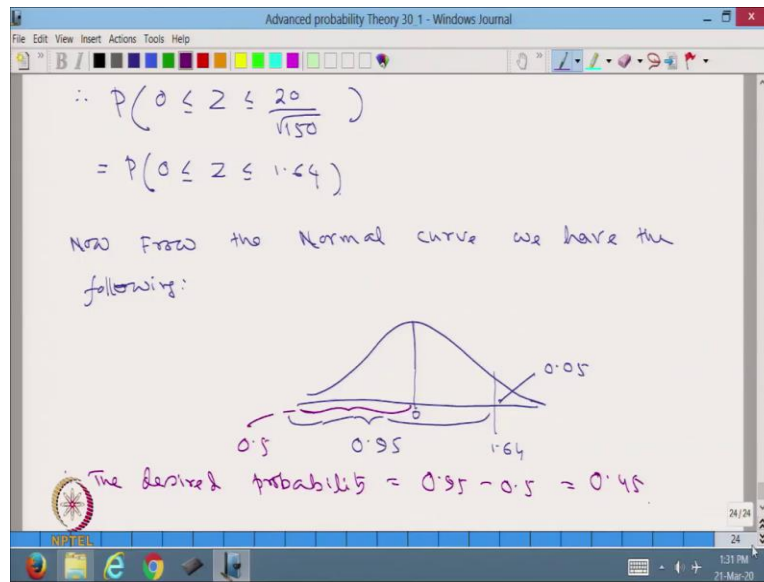 Advanced probability Theory 30_1 - Windows Journal
File Edit View Insert Actions Tools Help
B I
∴ P(0 ≤ Z ≤ 20/√150)
= P(0 ≤ Z ≤ 1.64)
Now From the Normal curve we have the
following:
0.05
0
0.5 0.95 1.64
∴ The desired probability = 0.95 - 0.5 = 0.45
24/24
NPTEL
24
1:31 PM
21-Mar-20